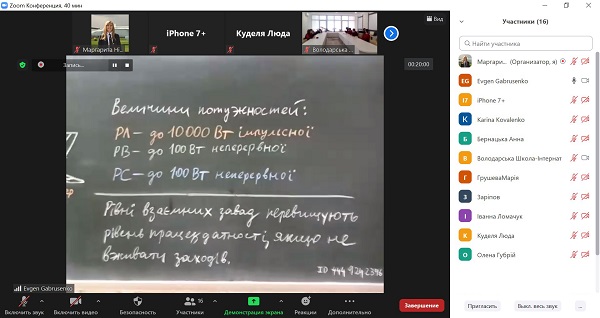 Zoom Конференция, 40 мин
Вид
Маргарита Ні...
iPhone 7+
Куделя Люда
Володарська ...
Запись...
00:20:00
Величини потужностей:
РА – до 10 000 Вт імпульсної
РВ – до 100 Вт неперервної
РС – до 100 Вт неперервної
Рівні взаємних завад перевищують
рівень працездатності, якщо не
вживати заходів.
ID 444 924 2396
Evgen Gabrusenko
Включить звук
Включить видео
Безопасность
Участники
16
Демонстрация экрана
Реакции
Дополнительно
Завершение
Участники (16)
Найти участника
Маргари... (Организатор, я)
EG Evgen Gabrusenko
I7 iPhone 7+
K Karina Kovalenko
Б Бернацька Анна
В Володарська Школа-Інтернат
Г ГрушеваМарія
З Заріпов
І Іванна Ломачук
К Куделя Люда
О Олена Губрій
Пригласить
Выкл. весь звук
...